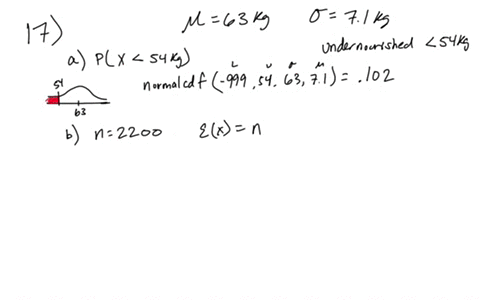 17) μ = 63 kg σ = 7.1 kg
undernourished < 54 kg
a) P( X < 54 kg)
normalcdf (-999, 54, 63, 7.1) = .102
L U σ μ
54
63
b) n = 2200 E(x) = n